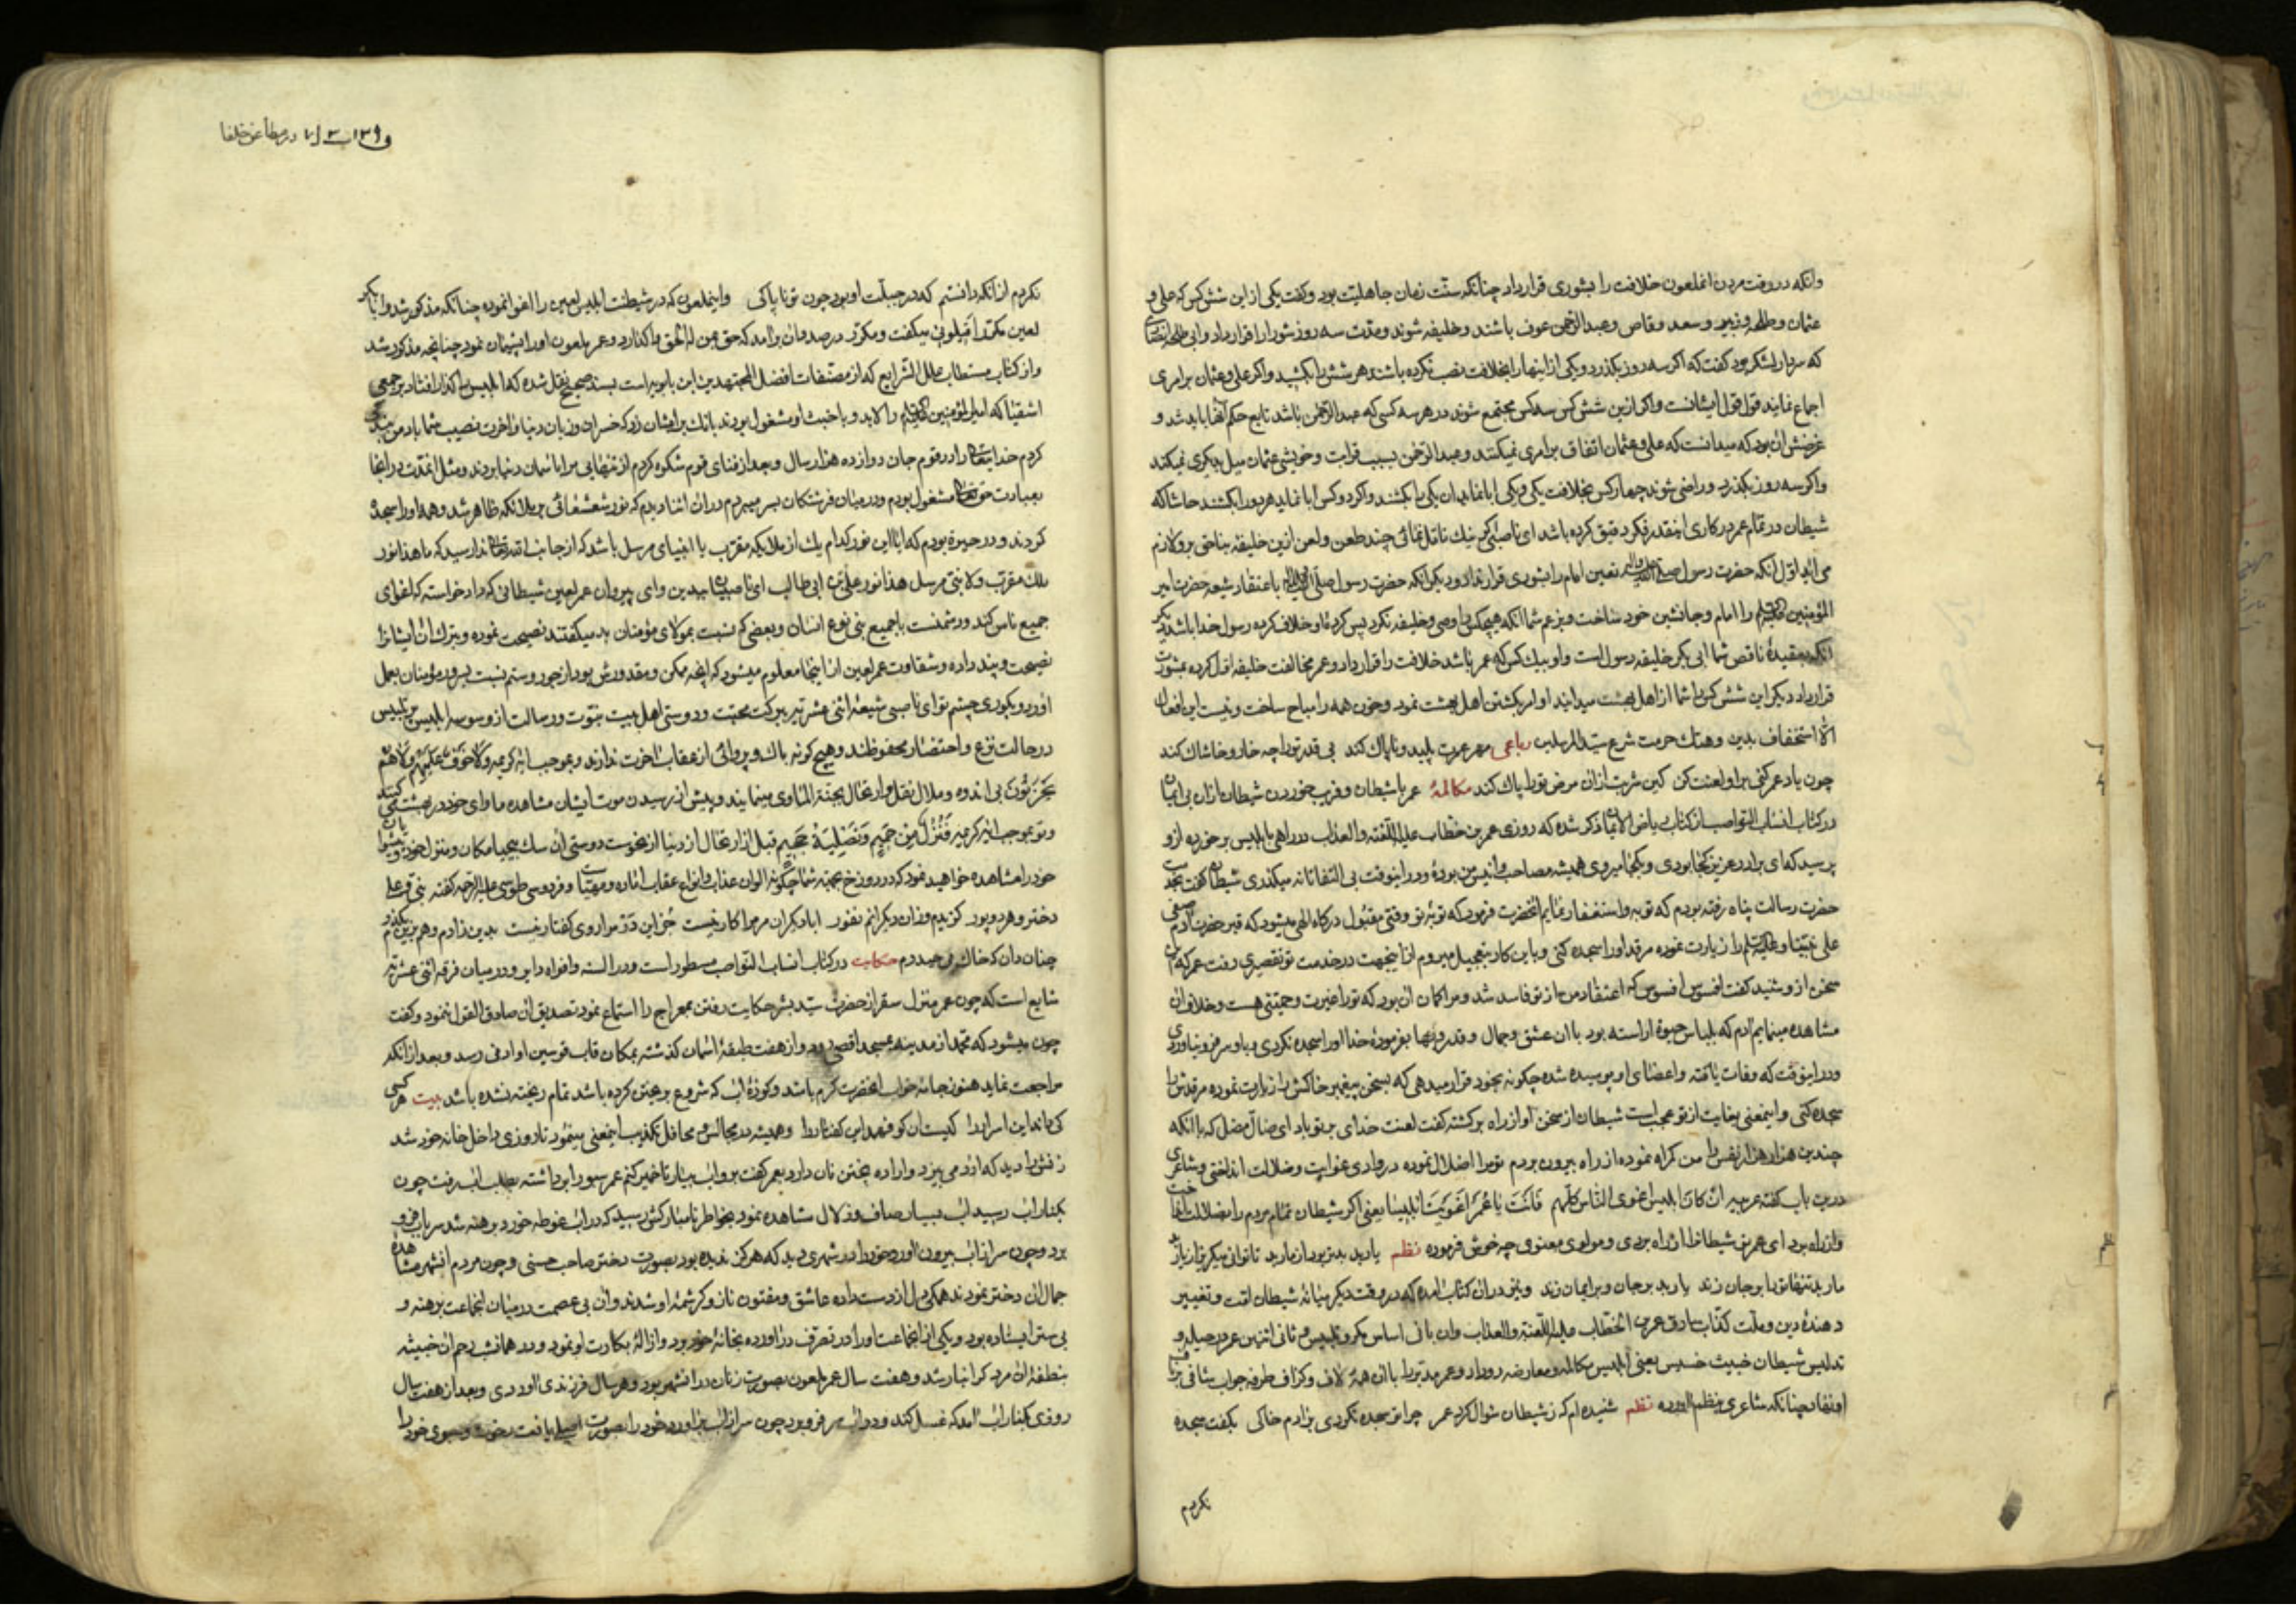 وانکه در وقت مردن انملعون خلافت را بشوری قرار داد چنانکه سنّت زمان جاهلیّت بود و کفت یکی از این شش کس که علی و
عثمان و طلحه و زبیر و سعد وقاص و عبدالرحمن عوف باشند و خلیفه شوند و مدّت سه روز شوری را قرار داد و ابی طلحه انصاری
که سردار لشکر بود کفت که اکر سه روز بکذرد و یکی از اینها را بخلافت نصب نکرده باشند هر شش را بکشید و اکر علی و عثمان بر امری
اجماع نمایند قول قول ایشانست و اکر ازین شش کس سه کس مجتمع شوند در هر سه کسی که عبدالرحمن باشد تابع حکم آنها باید شد و
غرضش ان بود که میدانست که علی و عثمان اتفاق بر امری نمیکنند و عبدالرحمن بسبب قرابت و خویشی عثمان میل بدیکری نمیکند
و اکر سه روز بکذرد و راضی شوند چهار کس بخلافت یکی و یکی ابا نماید ان یکی را بکشند و اکر دو کس ابا نماید هر دو را بکشند حاشا که
شیطان در تمام عمر در کاری اینقدر فکر دقیق کرده باشد ای ناصبی کر نیك تامّل نمائی چند طعن و لعن ازین خلیفه بناحق بر و لازم
می اید اوّل انکه حضرت رسول صلی الله علیه واله تعین امام را بشوری قرار نداد و دیکر انکه حضرت رسول صلّی الله علیه واله باعتقاد شیعه حضرت امیر
المؤمنین علیه السلم را امام و جانشین خود ساخت و بزعم شما انکه هیچکس را وصی و خلیفه نکرد پس کردۀ او خلاف کرده رسول خدا باشد دیکر
انکه بعقیدۀ ناقص شما ابی بکر خلیفه رسول است و او بیك کس که عمر باشد خلافت را قرار داد و عمر مخالفت خلیفه اوّل کرده بمشورت
قرار داد دیکر این شش کس را شما از اهل بهشت میدانید او امر بکشتن اهل بهشت نمود و خون همه را مباح ساخت و نیست این افعال
الّا استخفاف بدین و هتك حرمت شرع سیّد المرسلین رباعی مهر عمرت پلید و ناپاك کند بی قدر ترا چه خار و خاشاك کند
چون یاد عمر کنی برا و لعنت کن کین شربت ازان مرض ترا پاك کند مکالمۀ عمر با شیطان و فریب خوردن شیطان ازان بی ایمان
در کتاب انساب النواصب از کتاب ریاض ذکر شده که روزی عمر بن خطّاب علیه اللّعنه و العذاب در راهی با ابلیس برخورده ازو
پرسید که ای برادر عزیز کجا بودی و بکجا میروی همیشه مصاحب و انیس من بودۀ و در اینوقت بی التفاتانه میکذری شیطان کفت بخدمت
حضرت رسالت پناه رفته بودم که توبه و استغفار نمایم انحضرت فرمود که توبۀ تو وقتی مقبول درکاه الهی میشود که قبر حضرت آدم صفی
علی نبیّنا و علیه السلم را زیارت نموده مرقد او را سجده کنی و باین کار بتعجیل میروم از اینجهت در خدمت تو تقصیری رفت عمر که این
سخن ازو شنید کفت افسوس افسوس که اعتقاد من از تو فاسد شد و مرا کمان ان بود که ترا غیرت و حمیّتی هست و خلاف ان
مشاهده مینمایم ادم که بلباس حیوة اراسته بود با ان عشق و جمال و قدر و بها بفرمودۀ خدا او را سجده نکردی و باو سر فرو نیاوردی
و در اینوقت که وفات یافته و اعضای او پوسیده شده چکونه بخود قرار میدهی که بسخن پیغمبر خاکش را زیارت نموده مرقدش را
سجده کنی و اینمعنی بغایت از تو عجب است شیطان از سخن او از راه برکشته کفت لعنت خدای بر تو باد ای ضالّ مضل که با انکه
چندین هزار هزار نفس را من کمراه نموده از راه بیرون بردم تو مرا اضلال نموده در وادی غوایت و ضلالت انداختی و شاعری
درین باب کفته عربیه ان کان ابلیس اغوی النّاس کلّهم فانت یا عمر اغویت ابلیسا یعنی اکر شیطان تمام مردم را بضلالت انداخت
و از راه برد ای عمر تو شیطانرا از راه بردی و مولوی معنوی چه خوش فرموده نظم یار بد بدتر بود از مار بد تا توانی میکریز از یار بد
مار بد تنها ترا بر جان زند یار بد بر جان و بر ایمان زند و نیز در ان کتاب امده که در وقت دیکر میانۀ شیطان امّت و تغییر
دهندۀ دین و ملّت کذّاب نادق عمر بن الخطّاب علیه اللّعنة و العذاب و ان بانی اساس مکر و تلبیس و ثانی اثنین عمر در حیله و
تدلیس شیطان خبیث خسیس یعنی ابلیس مکالمه و معارضه رو داد و عمر مدتر را با ان همۀ لاف و کزاف طرفه جواب شافی
افتاد چنانکه شاعری بنظم آورده نظم شنیده ام که ز شیطان سؤال کرد عمر چرا تو سجده نکردی بر ادم خاکی بکفت سجده
نکردم
در مطاعن خلفا
نکردم از انکه دانستم که در جبلّت او بود چون تو ناپاکی و اینملعون که در شیطنت ابلیس لعین را اغوا نموده چنانکه مذکور شد و ابا بکر
لعین مکرّر اقیلونی میکفت و مکرّر در صدد مان برامد که حق بمن له الحق واکذارد و عمر ملعون او را پشیمان نمود چنانچه مذکور شد
و از کتاب مستطاب علل الشرایع که از مصنّفات افضل المجتهدین ابن بابویه است بسند صحیح نقل شده که ابلیس را کذار افتاد بر جمعی
اشقیا که امیر المؤمنین علیه السلم را بد و با خبث او مشغول بودند بانك بر ایشان زد که خسران و زیان دنیا و اخرت نصیب شما باد من بندکی
کردم خدایتعالی را در قوم جان دوازده هزار سال و بعد از فنای قوم شکوه کردم از تنهایی مرا باسمان دنیا بردند و مثل انمدّت در انجا
بعبادت حق تعالی مشغول بودم و در میان فرشتکان بسر میبردم در ان اثنا دیدم که نور شعشعانی بر ملائکه ظاهر شد و همه او را سجدۀ
کردند و در حیرة بودم که ایا این نور کدام یك از ملایکه مقرّب یا انبیای مرسل باشد که از جانب الله تعالی ندا رسید که ما هذا نور
ملك مقرّب و لا نبیّ مرسل هذا نور علیّ بن ابی طالب ای ناصبیان بیدین و ای پیروان عمر لعین شیطانی که داد خواسته که اغوای
جمیع ناس کند و دشمنست با جمیع بنی نوع انسان و بعضی کم نسبت بمولای مؤمنان بد میکفتند نصیحت نموده و بترك ان ایشانرا
نصیحت و پند داده و شقاوت عمر لعین از اینجا معلوم میشود که انچه ممکن و مقدورش بود از جور و ستم نسبت بسرور مؤمنان بعمل
اورد و بکوری چشم تو ای ناصبی شیعۀ اثنی عشریه ببرکت محبّت و دوستی اهل بیت نبوّت و رسالت از وسوسه ابلیس پر تلبیس
در حالت نزع و احتضار محفوظند و هیچ کونه باك و پروائی از عقاب اخرت ندارند و بموجب ایۀ کریمه و لا خوف علیهم و لا هم
یحزنون بی اندوه و ملال نقل و ارتحال بجنّة الماوی مینمایند و پیش از رسیدن موت ایشان مشاهده ماوای خود در بهشت میکنند
و تو بموجب ایۀ کریمه فنزل من حمیم و تصلیة جحیم قبل از ارتحال از دنیا از نحوست دوستی ان سك بیحیا مکان و منزل خود و پیشوایان
خود را مشاهده خواهید نمود که در دوزخ بجهة شما چکونه الوان عذاب و انواع عقاب اماده و مهیّاست و فردوسی طوسی علیه الرحمه کفته نبی و علی
دختر و هر دو پور کزیدم وزان دیکرانم نفور ابا دیکران مر مرا کار نیست جز این در مرا روی کفتار نیست بدین زادم و هم برین بکذرم
چنان دان که خاك پی حیدرم حکایت در کتاب انساب النواصب مسطور است و در السنه و افواه دایر و در میان فرقه اثنی عشریّه
شایع است که چون عمر منزل سقر از حضرت سیّد بشر حکایت رفتن بمعراج را استماع نمود تصدیق ان صادق القول ننمود و کفت
چون میشود که محمّد از مدینه بمسجد اقصی رود و از هفت طبقۀ اسمان کذشته بمکان قاب قوسین او ادنی رسد و بعد از انکه
مراجعت نماید هنوز جامۀ خواب انحضرت کرم باشد و کوزۀ اب که شروع بریختن کرده باشد تمام ریخته نشده باشد بیت هر کسی
کی داند این اسرار را کیستان کو فهمد این کفتار را و همیشه در مجالس و محافل تکذیب اینمعنی مینمود تا روزی داخل خانه خود شد
زنش را دید که ارد می بیزد و اراده پختن نان دارد بعمر کفت برو اب بیار تا خمیر کنم عمر سبو را برداشته بطلب اب رفت چون
بکنار اب رسید اب بسیار صاف و زلال مشاهده نمود بخاطر نامبارکش رسید که در اب غوطه خورد برهنه شد سر باب فرو
برد و چون سر از اب بیرون آورد خود را در شهری دید که هرکز ندیده بود بصورت دختر صاحب حسنی و چون مردم انشهر مشاهدۀ
جمال ان دختر نمودند همکی دل از دست داده عاشق و مفتون ناز و کرشمۀ او شدند و ان بی عصمت در میان انجماعت برهنه و
بی ستر ایستاده بود و یکی از انجماعت او را در تصرف در اورده بخانۀ خود برد و ازالۀ بکارت او نمود و در همانشب رحم ان خبیثه
بنطفۀ ان مرد کرانبار شد و هفت سال عمر ملعون بصورت زنان در انشهر بود و هر سال فرزندی اوردی و بعد از هفت سال
روزی بکنار اب آمد که غسل کند و در اب سر فرو برد چون سر از اب براورد خود را بصورت اصلی یافت رخوت و سبوی خود را